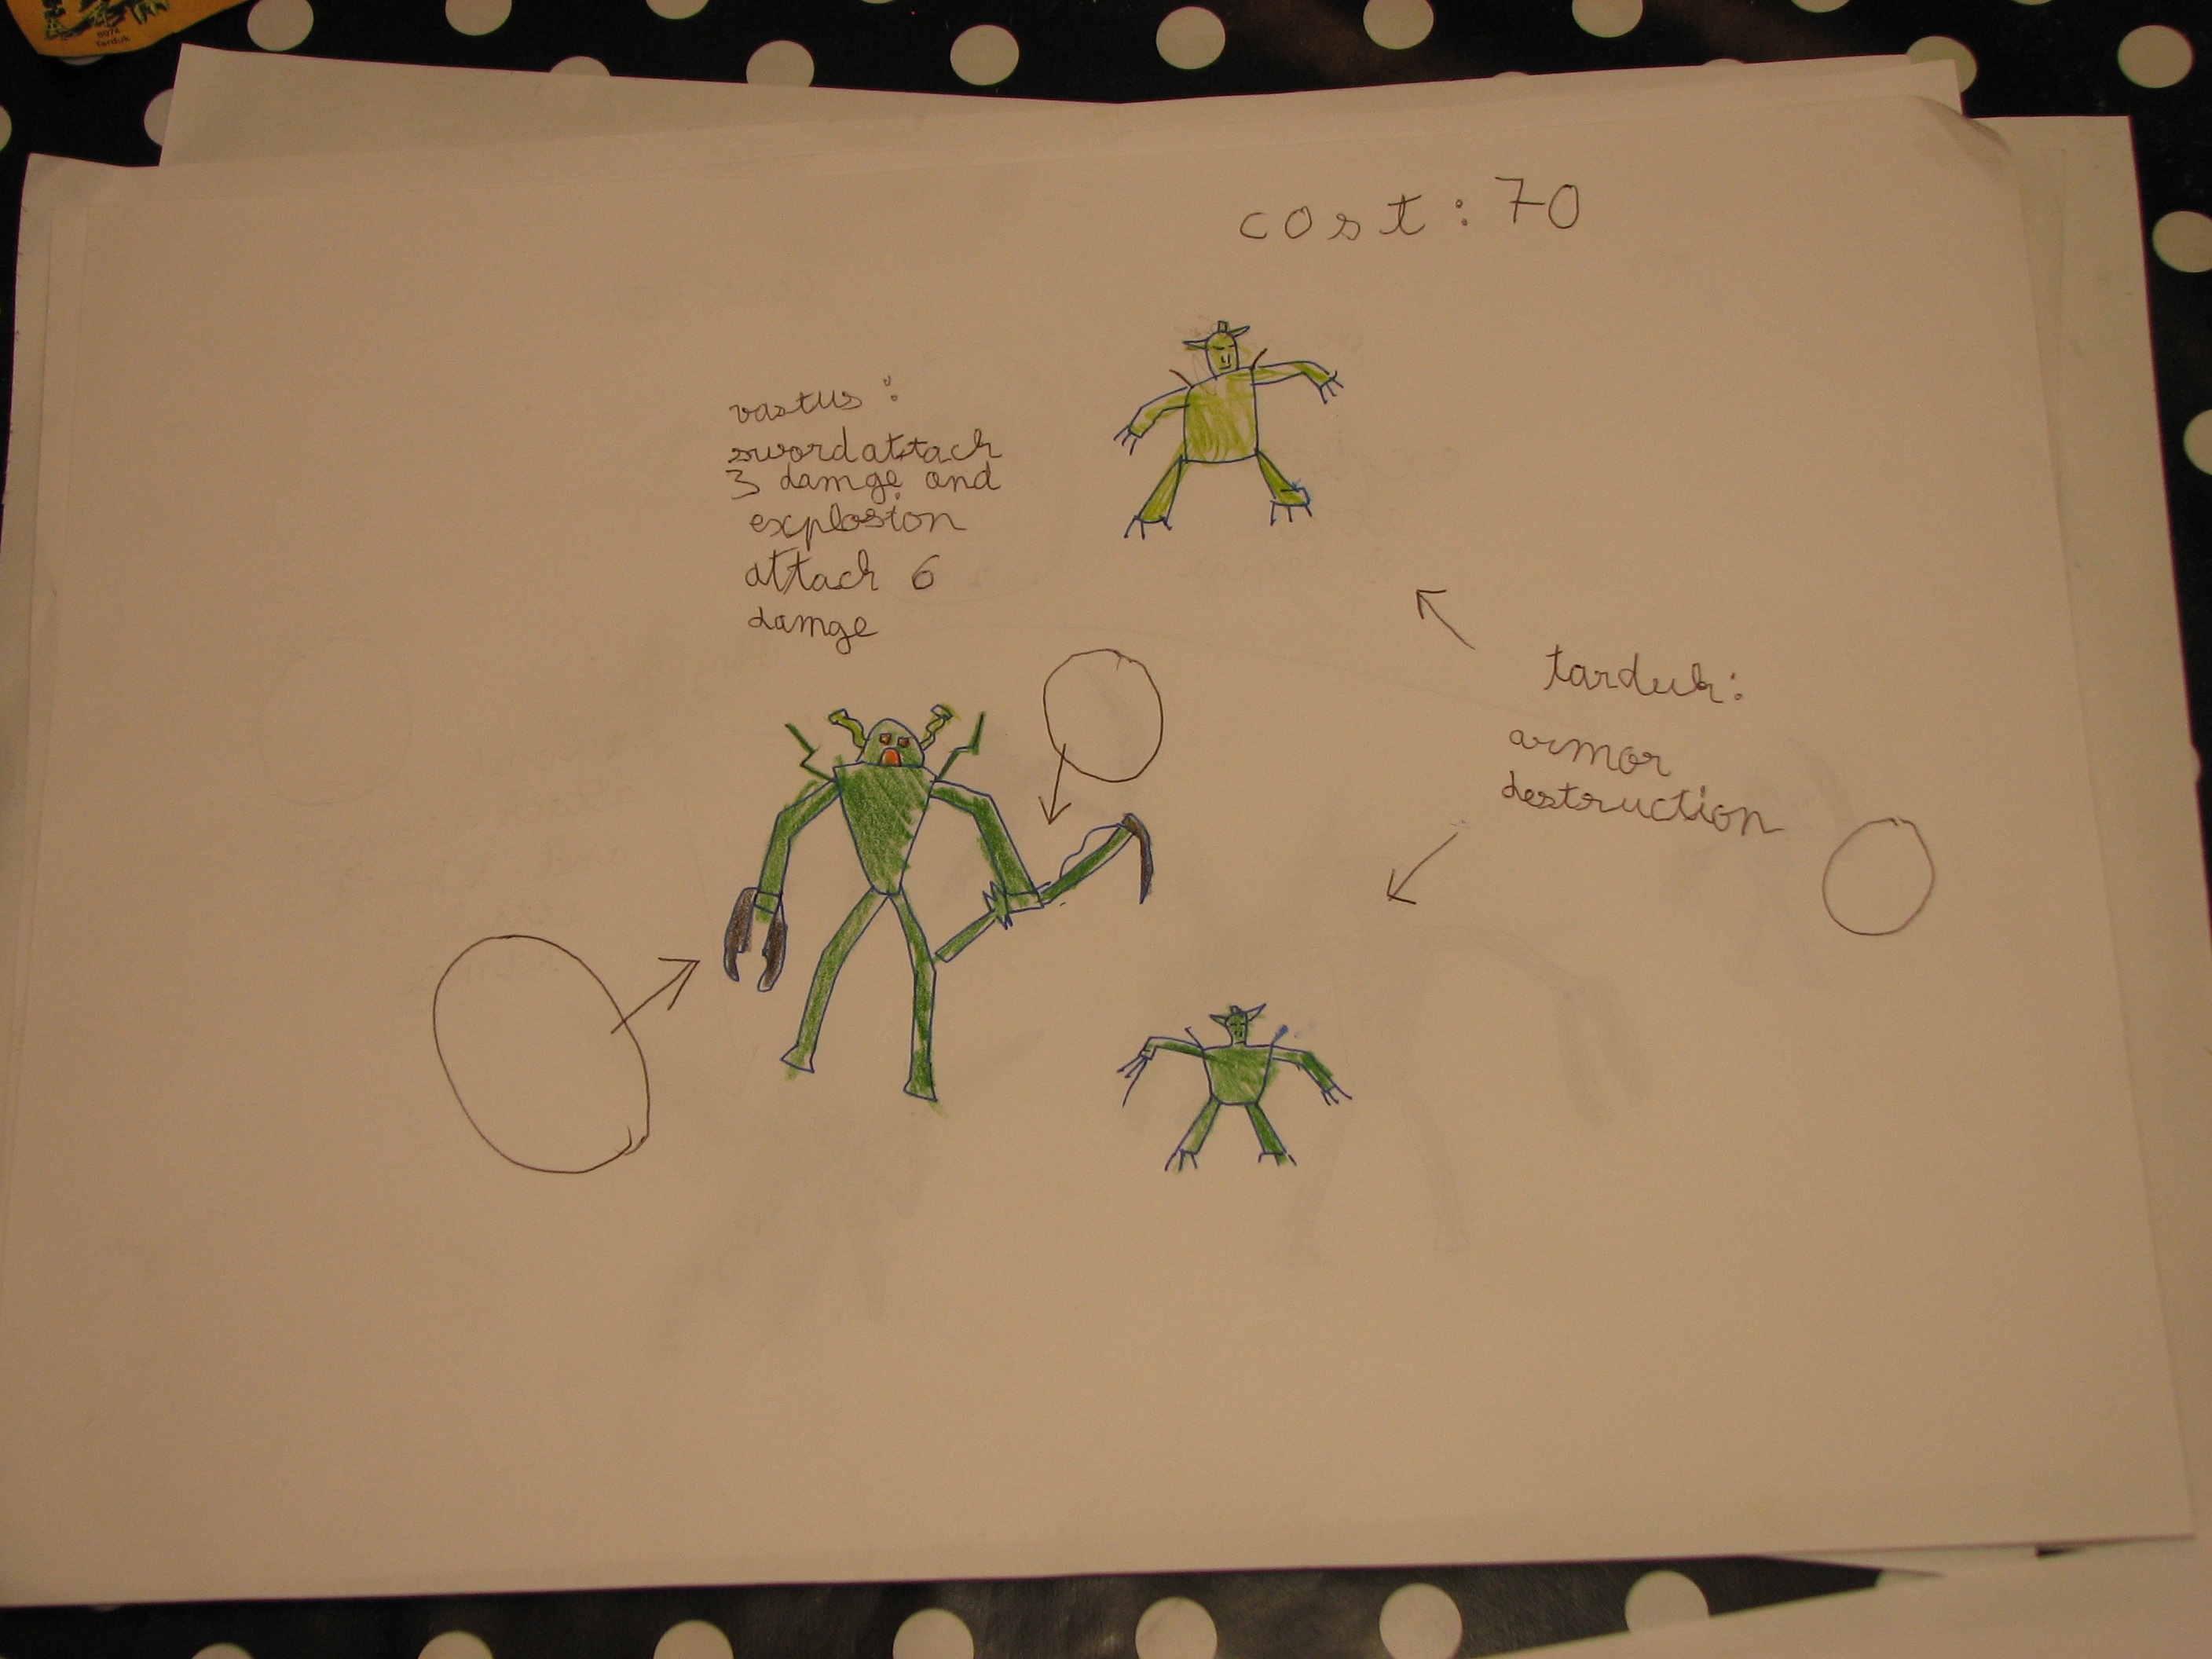 8974
Tarduk
cost: 70
vastus:
swordattack
3 damge and
explosion
attack 6
damge
tarduk:
armor
destruction